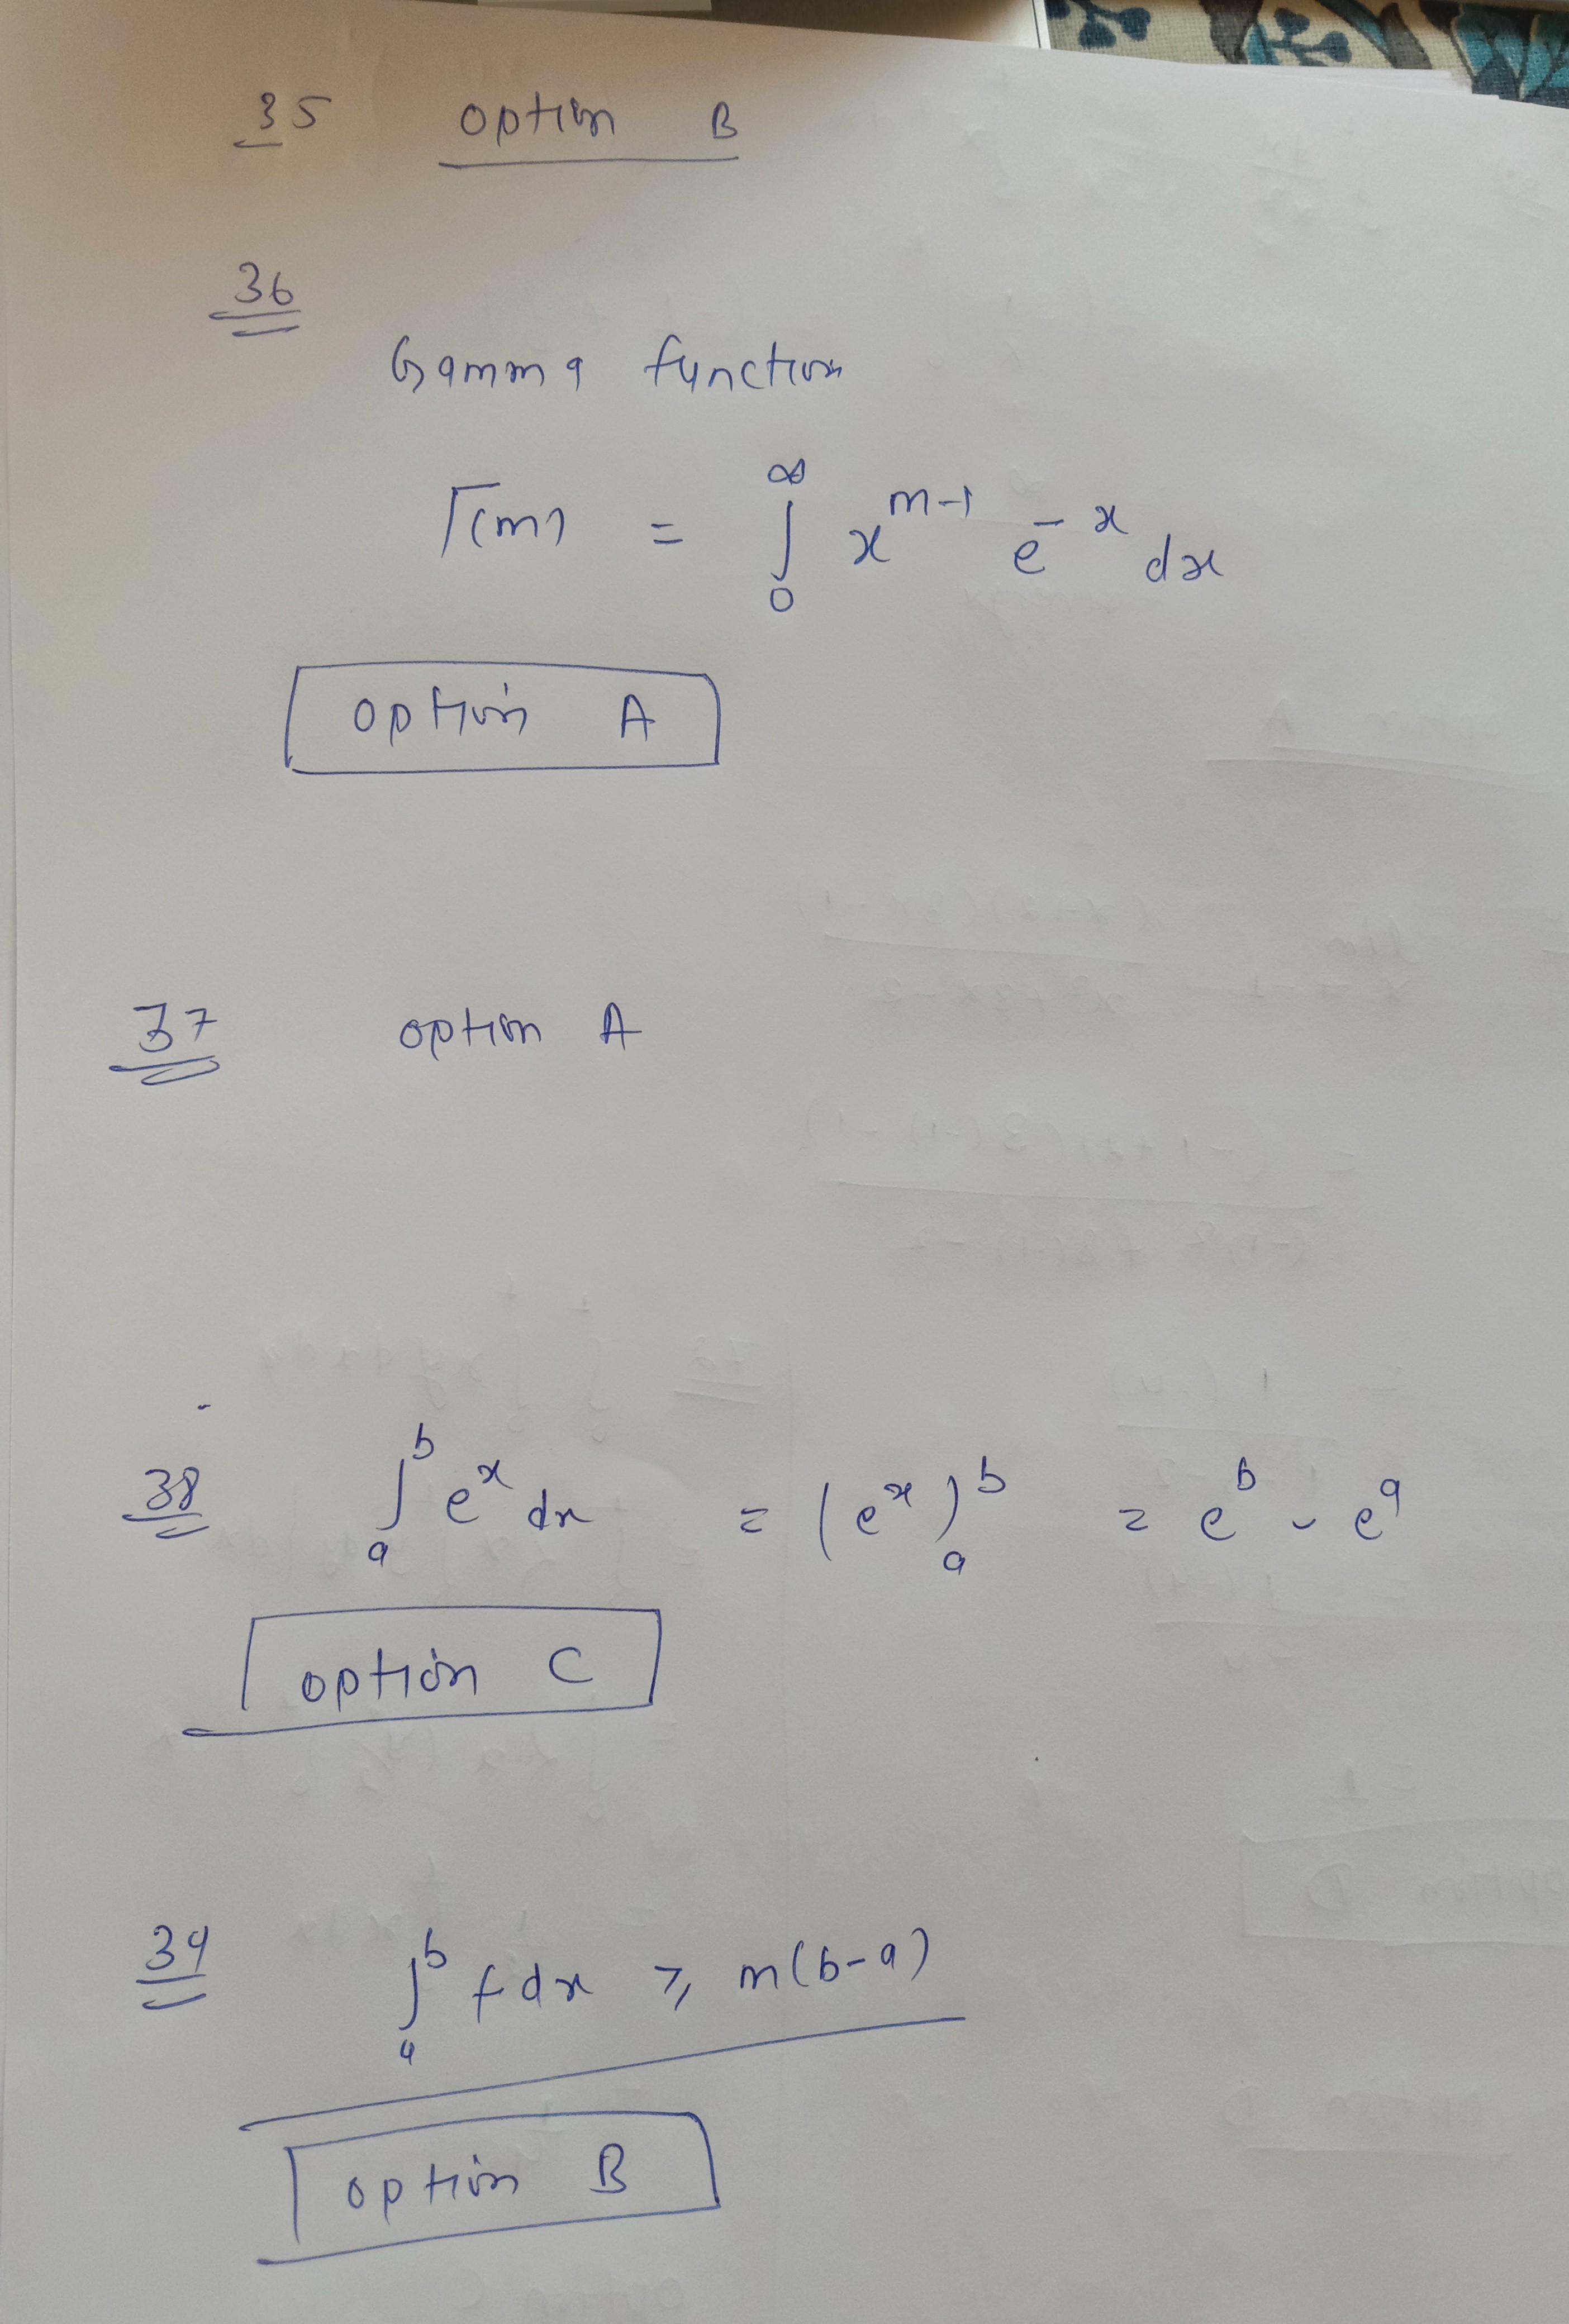 35 option B
36
Gamma function
Γ(m) = ∫₀^∞ x^(m-1) e^(-x) dx
option A
37 option A
38 ∫ₐᵇ eˣ dx = (eˣ)ₐᵇ = eᵇ - eᵃ
option C
39 ∫ₐᵇ f dx ≥ m(b-a)
option B